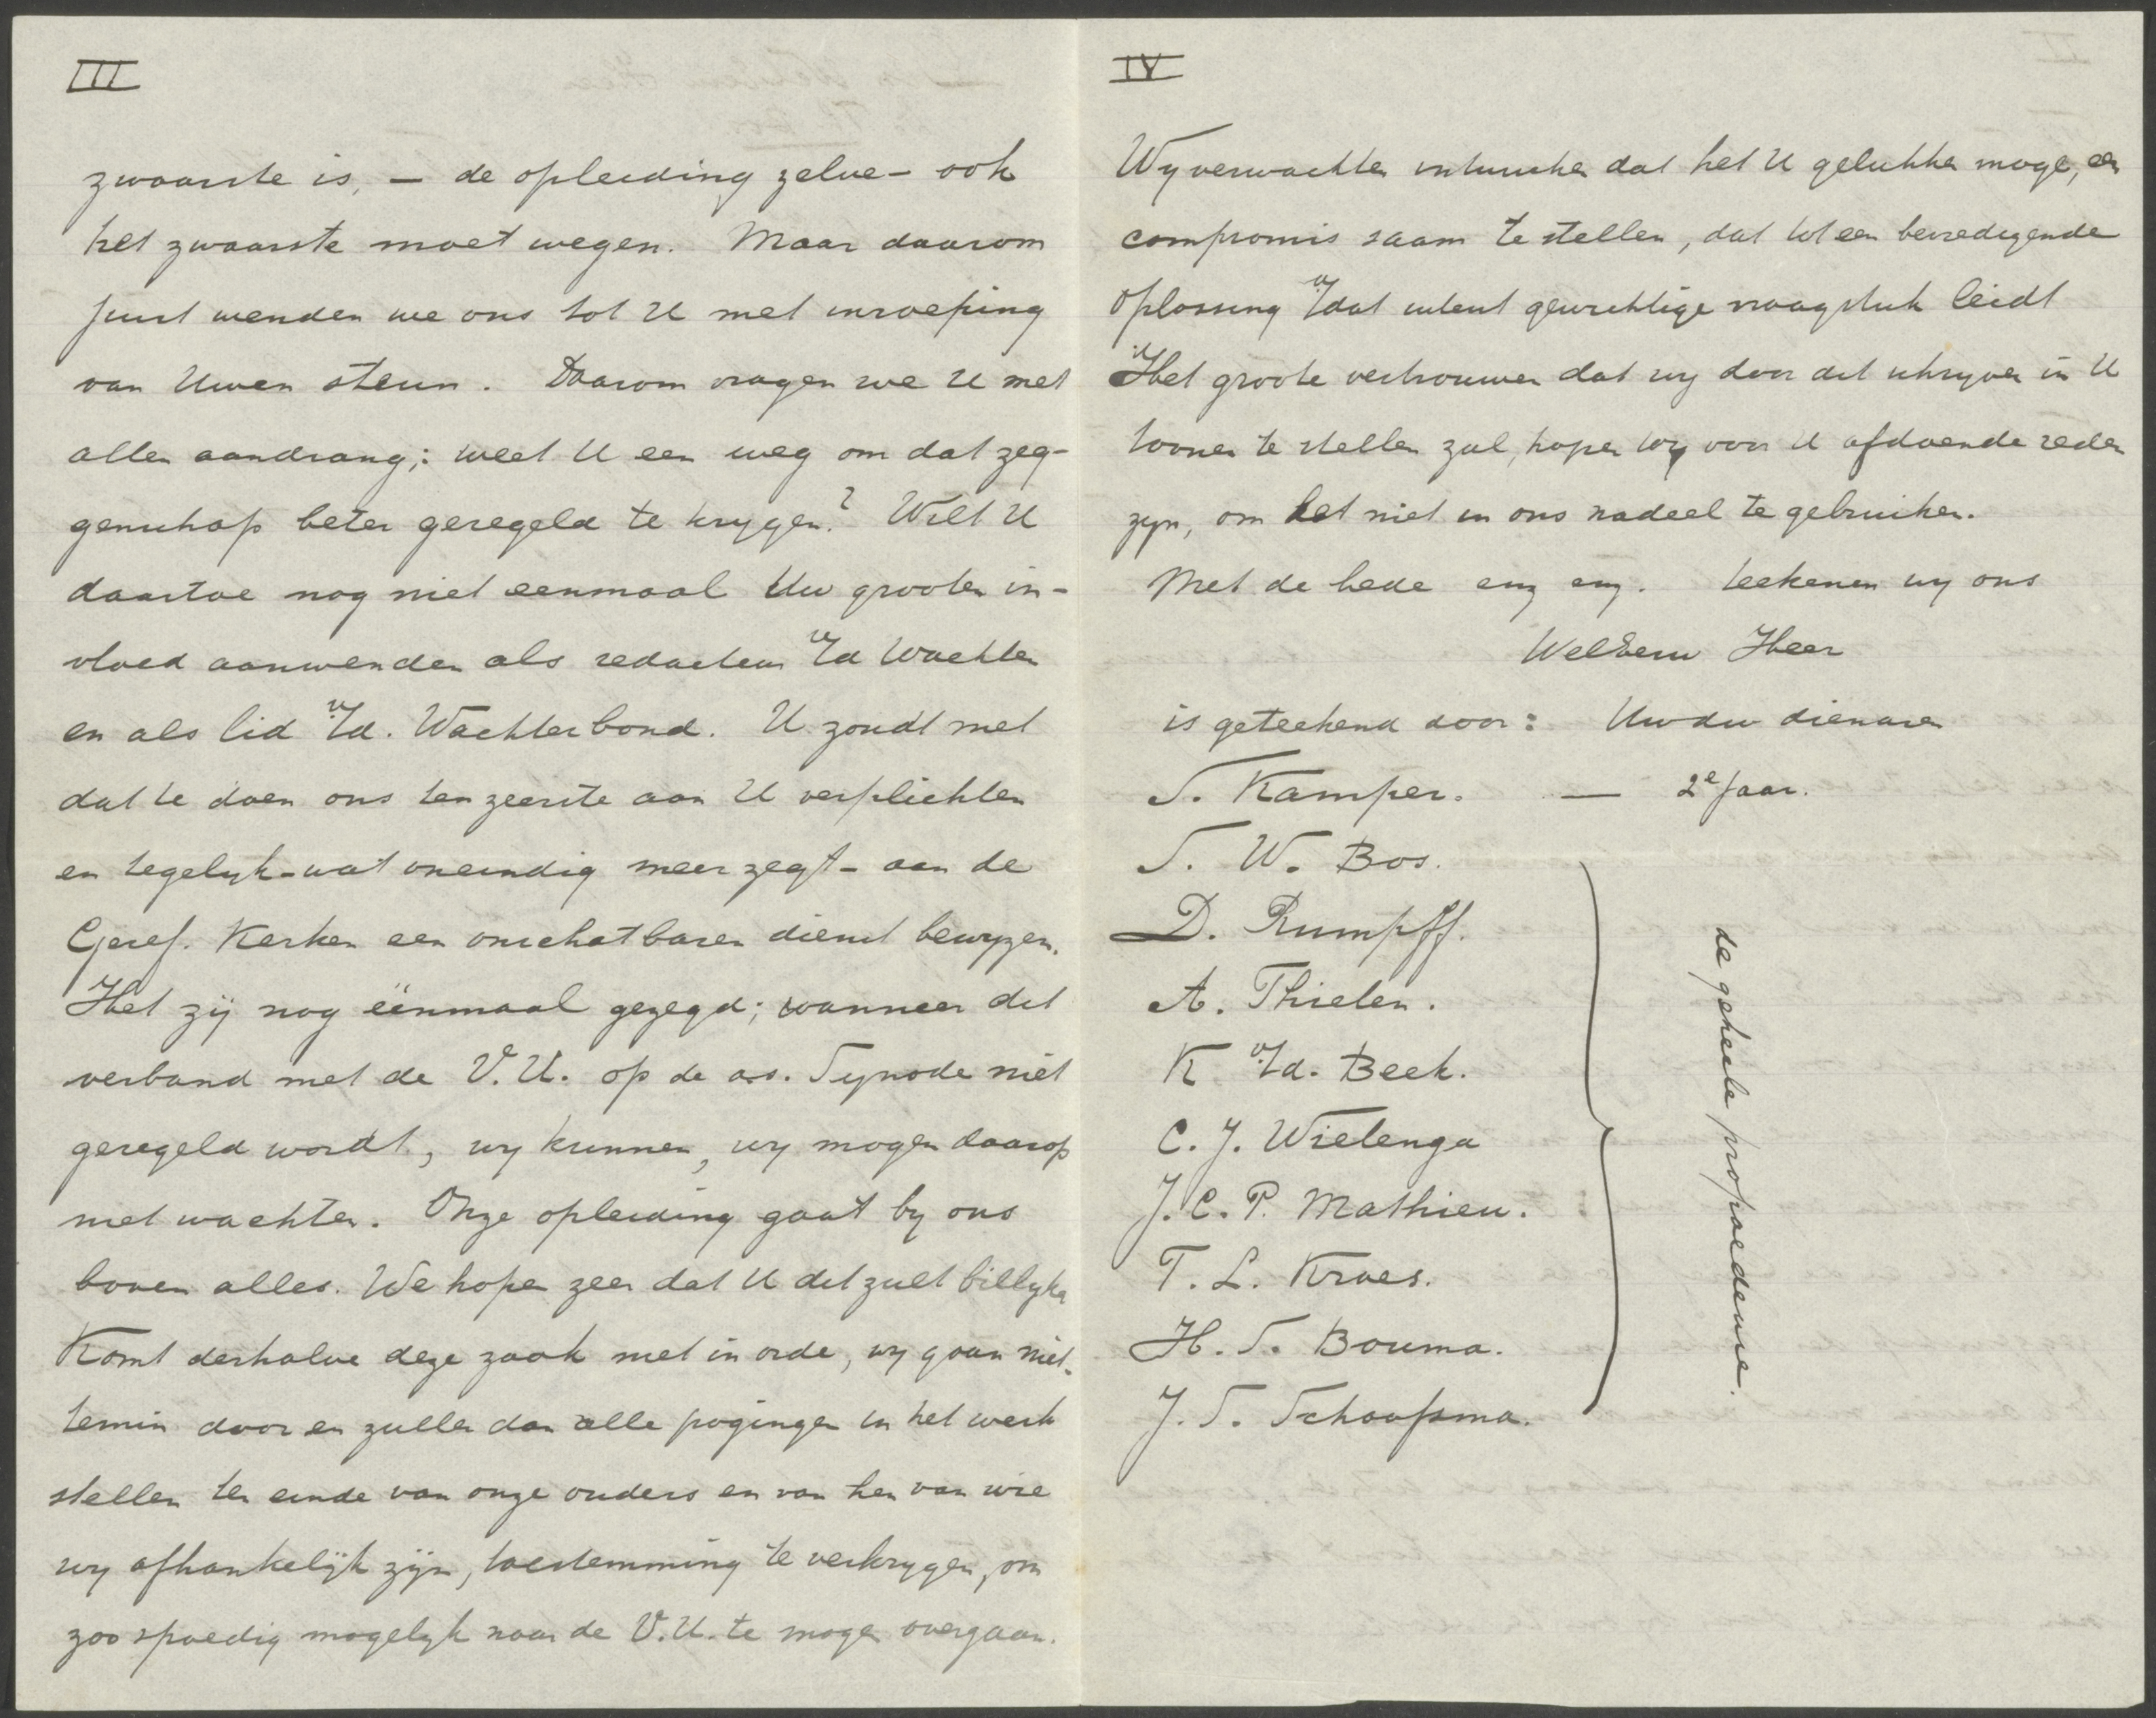 III
zwaarste is, — de opleiding zelve — ook
het zwaarste moet wegen. Maar daarom
juist wenden we ons tot U met inroeping
van Uwen steun. Daarom vragen we U met
allen aandrang; weet U een weg om dat zeg-
genschap beter geregeld te krygen? Wilt U
daartoe nog niet eenmaal Uw grooten in-
vloed aanwenden als redacteur v/d Wachter
en als lid v/d. Wachterbond. U zoudt met
dat te doen ons ten zeerste aan U verplichten
en tegelyk - wat oneindig meer zegt - aan de
Geref. Kerken een onschatbaren dienst bewyzen.
Het zij nog éénmaal gezegd; wanneer dit
verband met de V.U. op de a.s. Synode niet
geregeld wordt, wy kunnen, wy mogen daarop
niet wachten. Onze opleiding gaat by ons
boven alles. We hopen zeer dat U dit zult billyken
Komt derhalve deze zaak niet in orde, wy gaan niet-
temin door en zullen dan alle pogingen in het werk
stellen ten einde van onze ouders en van hen van wie
wy afhankelijk zijn, toestemming te verkrygen, om
zoo spoedig mogelyk naar de V.U. te mogen overgaan.
IV
Wy verwachten intusschen dat het U gelukken moge, een
compromis saam te stellen, dat tot een bevredigende
oplossing v/dat uterst gewichtige vraagstuk leidt
Het groote vertrouwen dat wy door dit schryven in U
toonen te stellen zal, hopen wy voor U afdoende reden
zyn, om het niet in ons nadeel te gebruiken.
Met de bede enz enz. teekenen wy ons
WelEerw Heer
is geteekend door: Uw dw dienaren
S. Kamper. — 2e Jaar.
S. W. Bos.
D. Rumpff.
A. Thielen.
K v/d. Beek.
C. J. Wielenga
J. C. P. Mathieu.
T. L. Kroes.
H. S. Bouma.
J. S. Schaafsma.
de geheele propaedeuse.